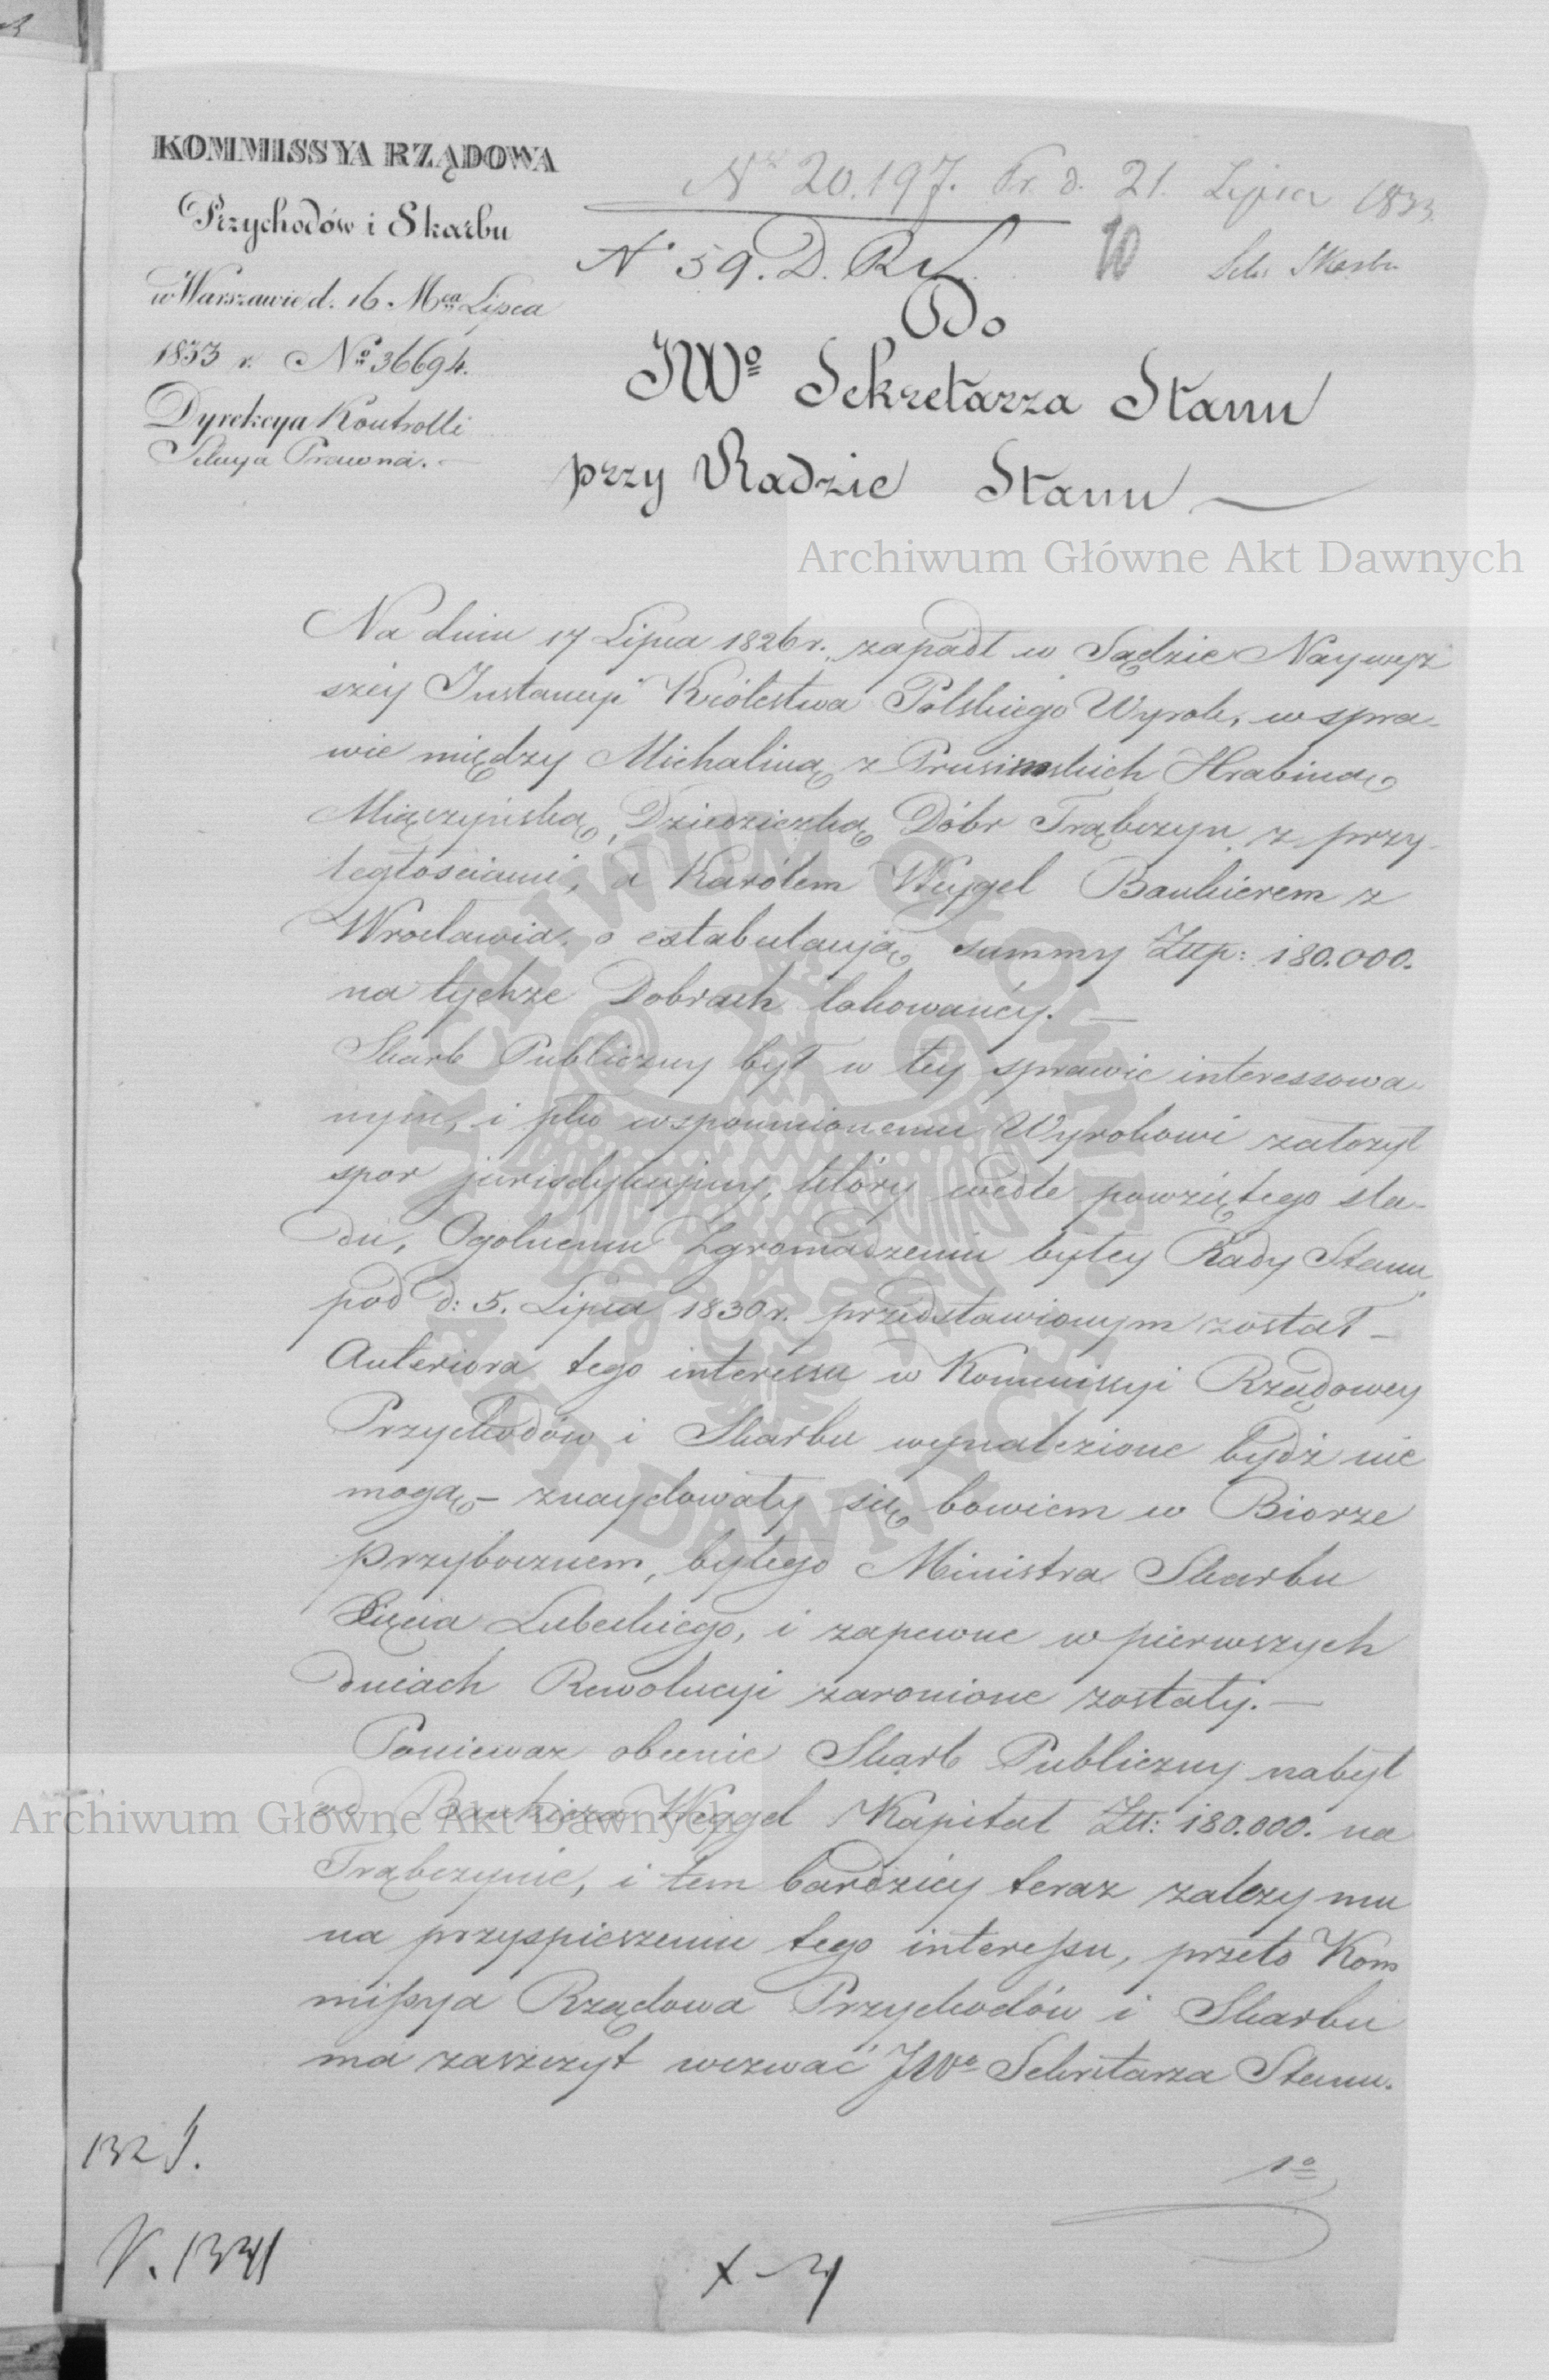 KOMMISSYA RZĄDOWA
Przychodów i Skarbu
w Warszawie d. 16 Mca Lipca
1833 r. No 36694.
Dyrekcya Kontrolli
Sekcya Prawna. —
No 20.197. Pr. d. 21. Lipca 1833.
No 59. D. R.
10
Do
JWo Sekretarza Stanu
przy Radzie Stanu —
Archiwum Główne Akt Dawnych
Na dniu 17 Lipca 1826 r. zapadł w Sądzie Naywyż
széy Instancyi Królestwa Polskiego Wyrok, w spra-
wie między Michaliną z Prusimskich Hrabiną
Miączyńską, Dziedziczką Dóbr Trąbczyn z przy-
ległościami, a Karólem Weygel Bankierem z
Wrocławia, o extabulacyią summy Złłp: 180.000.
na tychże Dobrach lokowanéy. —
Skarb Publiczny był w tey sprawie interessowa-
nym, i plko wspomnionemu Wyrokowi założył
spor jurisdykcyiny, który wedle powziętego sla-
du, Ogolnemu Zgromadzeniu byłey Rady Stanu
pod d: 5. Lipca 1830 r. przedstawionym został —
Anteriora tego interessu w Kommissyi Rządowey
Przychodów i Skarbu wynalezione bydź nie
mogą — znaydowały się bowiem w Biorze
Przybocznem, byłego Ministra Skarbu
Xięcia Lubeckiego, i zapewne w pierwszych
dniach Rewolucyi zaronione zostały. —
Ponieważ obecnie Skarb Publiczny nabył
od Bankiera Weygel Kapitał Złł: 180.000. na
Trąbczynie, i tem bardziey teraz zależy mu
na przyspieszeniu tego interessu, przeto Kom
missya Rządowa Przychodów i Skarbu
ma zaszczyt wezwać JWo Sekretarza Stanu.
Archiwum Główne Akt Dawnych
ARCHIWUM GŁÓWNE AKT DAWNYCH
1o